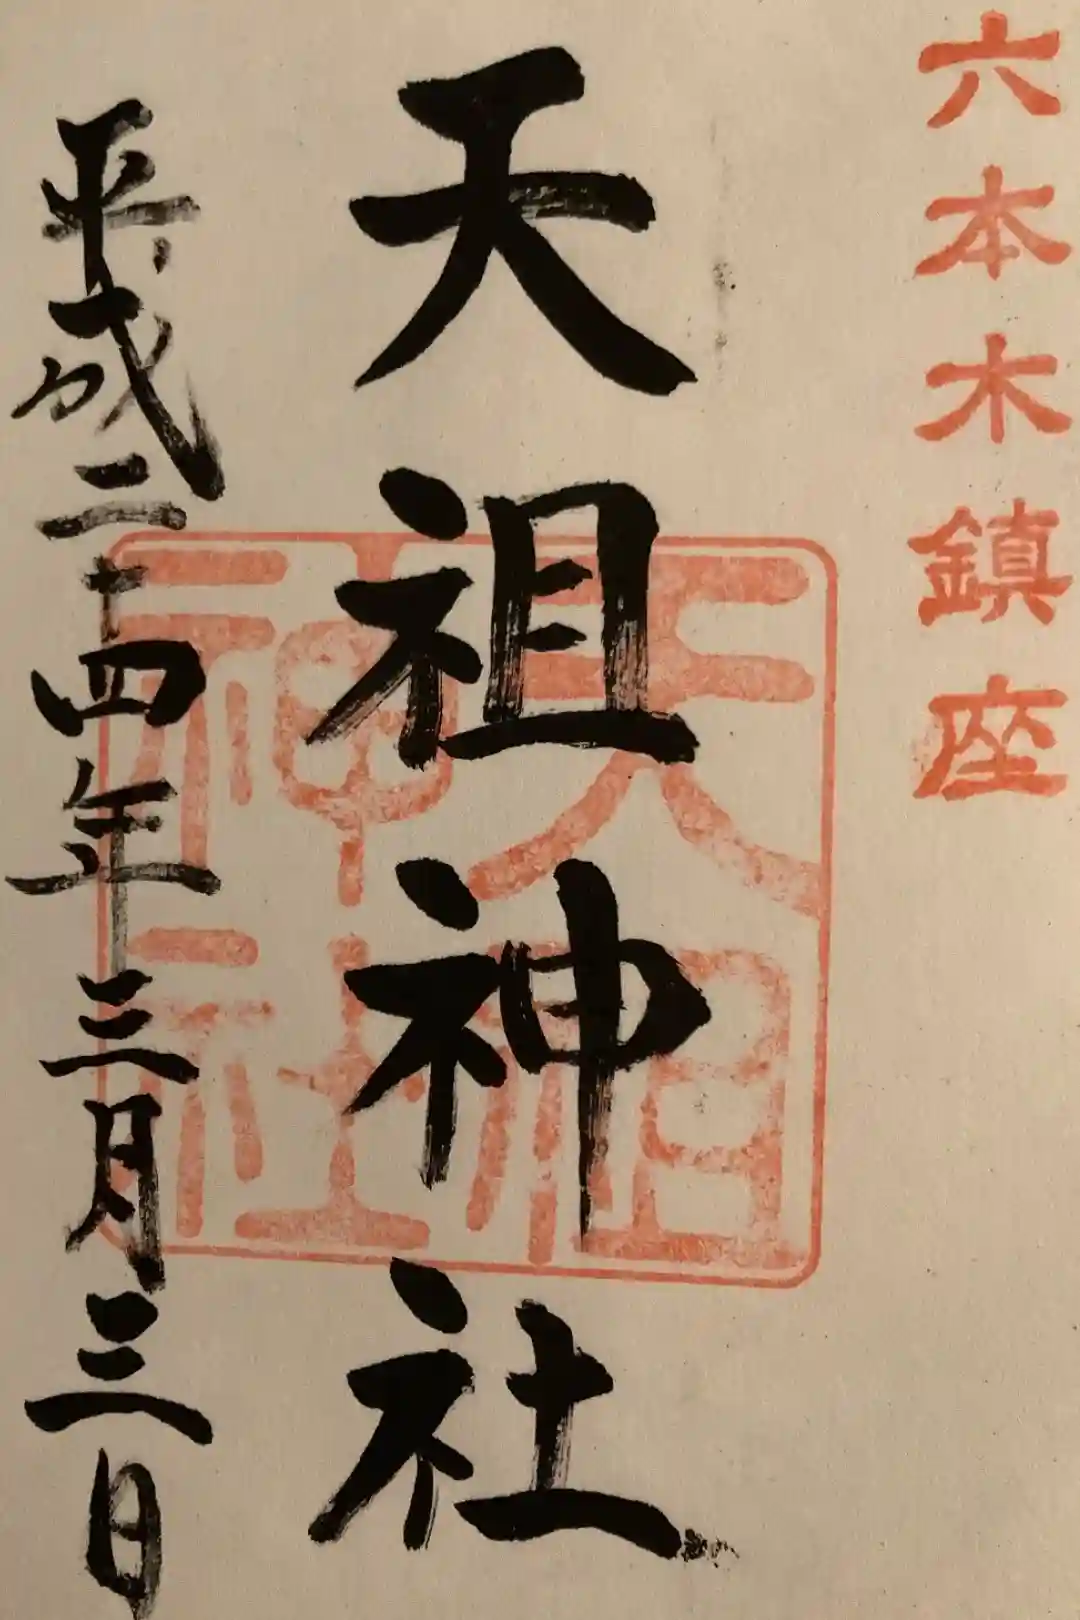 六本木鎮座
天祖神社
天祖
神社
平成二十四年三月三日